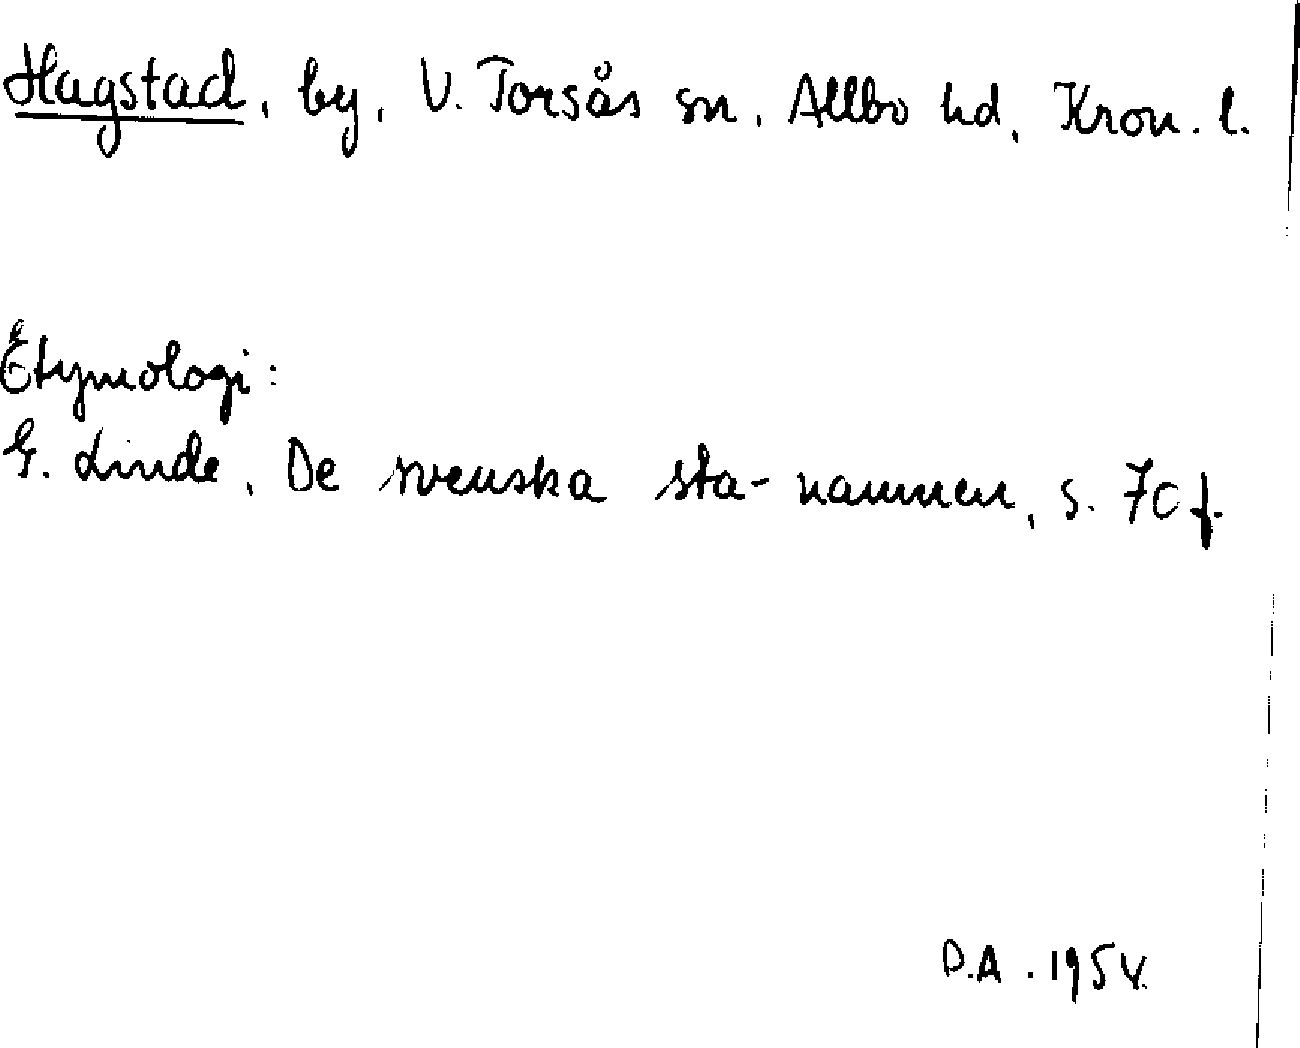 Hagstad, by, V. Torsås sn, Allbo hd, Kron. l.
Etymologi:
G. Linde, De svenska sta-namnen, s. 70 f.
D.A. 1954.